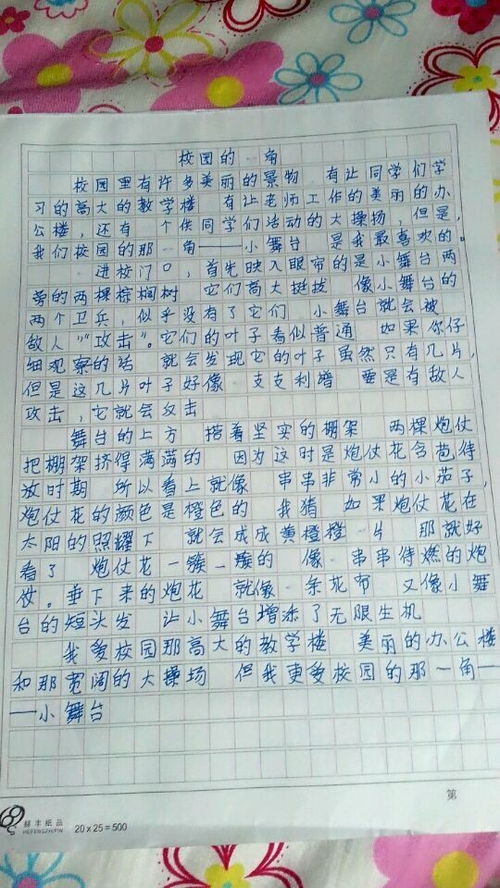 校园的一角
校园里有许多美丽的景物 有让同学们学
习的高大的教学楼 有让老师工作的美丽的办
公楼，还有 个供同学们活动的大操场，但是，
我们校园的那一角——小舞台 是我最喜欢的。
进校门口，首先映入眼帘的是小舞台两
旁的两棵棕榈树 它们高大挺拔 像小舞台的
两个卫兵，似乎没有了它们 小舞台就会被
敌人“攻击”。它们的叶子看似普通 如果你仔
细观察的话 就会发现它的叶子虽然只有几片，
但是这几片叶子好像 支支利 要是有敌人
攻击，它就会攻击
舞台的上方 搭着坚实的棚架 两棵炮仗
把棚架挤得满满的 因为这时是炮仗花含苞待
放时期 所以看上就像 串串非常小的小茄子，
炮仗花的颜色是橙色的 我猜 如果炮仗花在
太阳的照耀下 就会成成黄橙橙一片 那就好
看了 炮仗花一簇一簇的 像一串串待燃的炮
仗。垂下来的炮花 就像一条花布 又像小舞
台的短头发 让小舞台增添了无限生机
我爱校园那高大的教学楼 美丽的办公楼
和那宽阔的大操场 但我更爱校园的那一角—
—小舞台
第
20×25=500